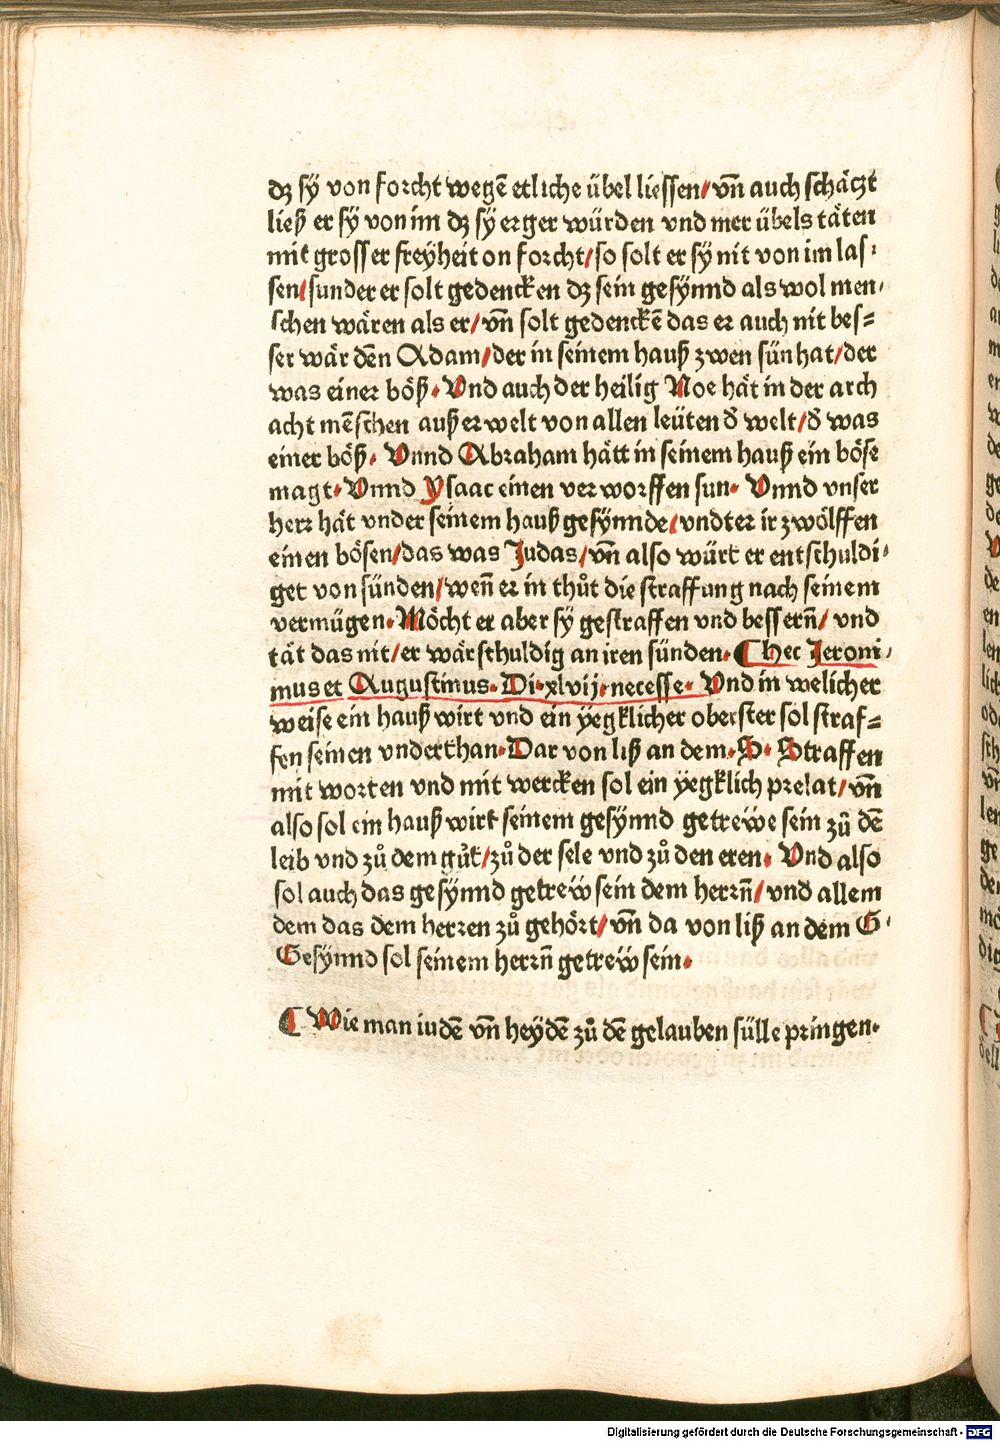 dꝫ sÿ von forcht wegē etliche übel liessen/ vn̄ auch schäczt
ließ er sÿ von im dꝫ sÿ erger würden vnd mer übels täten
mit grosser freÿheit on forcht/ so solt er sÿ nit von im las-
sen/ sunder er solt gedencken dꝫ sein gesÿnnd als wol men-
schen wären als er/ vn̄ solt gedenckē das er auch nit bes-
ser wär dēn Adam/ der in seinem hauß zwen sün hat/ der
was einer böß. Vnd auch der heilig Noe hät in der arch
acht mēschen außerwelt von allen leüten đ welt/ đ was
einer böß. Vnnd Abraham hätt in seinem hauß ein böse
magt. Vnnd Ysaac einen verworffen sun. Vnnd vnser
herr hät vnder seinem hauß gesÿnnde/ vndter ir zwölffen
einen bösen/ das was Judas/ vn̄ also würt er entschuldi-
get von sünden/ wen̄ er in thůt die straffung nach seinem
vermügen. Möcht er aber sÿ gestraffen vnd bessern̄/ vnd
tät das nit/ er wär schuldig an iren sünden. ¶ hec Jeroni-
mus et Augustinus. Di. xlvij. necesse. Vnd in welicher
weise ein hauß wirt vnd ein yegklicher oberster sol straf-
fen seinen vnderthan. Dar von liß an dem. S. Straffen
mit worten vnd mit wercken sol ein yegklich prelat/ vn̄
also sol ein hauß wirt seinem gesÿnnd getrewe sein zů dē
leib vnd zů dem gůt/ zů der sele vnd zů den eren. Vnd also
sol auch das gesÿnnd getreẅ sein dem herrn̄/ vnd allem
dem das dem herren zů gehört/ vn̄ da von liß an dem G.
Gesÿnnd sol seinem herrn̄ getreẅ sein.
¶ Wie man iudē vn̄ heÿdē zů dē gelauben sülle pringen.
Digitalisierung gefördert durch die Deutsche Forschungsgemeinschaft - DFG